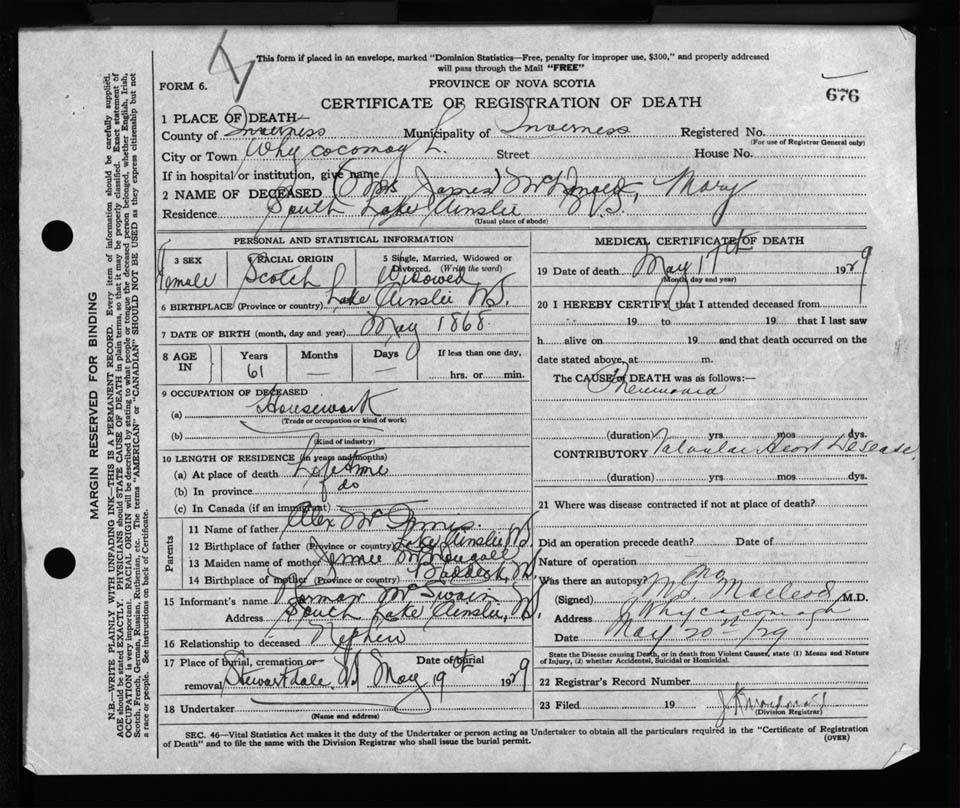 This form if placed in an envelope, marked "Dominion Statistics—Free, penalty for improper use, $300," and properly addressed
will pass through the Mail "FREE"
FORM 6.
PROVINCE OF NOVA SCOTIA
676
CERTIFICATE OF REGISTRATION OF DEATH
1 PLACE OF DEATH
County of Inverness Municipality of Inverness Registered No.
(For use of Registrar General only)
City or Town Whycocomagh Street House No.
If in hospital or institution, give name
2 NAME OF DECEASED (Mrs James) McDonald, Mary
Residence South Lake Ainslie N.S.
(Usual place of abode)
PERSONAL AND STATISTICAL INFORMATION
3 SEX RACIAL ORIGIN 5 Single, Married, Widowed or Divorced. (Write the word)
Female Scotch Widowed
6 BIRTHPLACE (Province or country) Lake Ainslie N.S.
7 DATE OF BIRTH (month, day and year) May 1868
8 AGE IN Years Months Days If less than one day,
61 — — hrs. or min.
9 OCCUPATION OF DECEASED
(a) Housework
(Trade or occupation or kind of work)
(b)
(Kind of industry)
10 LENGTH OF RESIDENCE (in years and months)
(a) At place of death Lifetime
(b) In province do
(c) In Canada (if an immigrant)
Parents
11 Name of father Alex McInnis.
12 Birthplace of father (Province or country) Lake Ainslie, N.S.
13 Maiden name of mother McDougall
14 Birthplace of mother (Province or country) Baddeck, N.S.
15 Informant's name Norman McSwain
Address South Lake Ainslie, N.S.
16 Relationship to deceased Nephew
17 Place of burial, cremation or removal Date of burial
Stewartdale, N.S. May 19th 1929
18 Undertaker
(Name and address)
MEDICAL CERTIFICATE OF DEATH
19 Date of death May 17th 1929
(Month, day and year)
20 I HEREBY CERTIFY that I attended deceased from
19 to 19 that I last saw
h alive on 19 and that death occurred on the
date stated above, at m.
The CAUSE of DEATH was as follows:—
Pneumonia
(duration) yrs mos dys.
CONTRIBUTORY Valvular Heart Disease,
(duration) yrs mos dys.
21 Where was disease contracted if not at place of death?
Did an operation precede death? Date of
Nature of operation
Was there an autopsy? No
(Signed) Macleod, M.D.
Address Whycocomagh
Date May 20th/29
State the Disease causing Death, or in death from Violent Causes, state (1) Means and Nature
of Injury, (2) whether Accidental, Suicidal or Homicidal.
22 Registrar's Record Number
23 Filed 19
(Division Registrar)
SEC. 46—Vital Statistics Act makes it the duty of the Undertaker or person acting as Undertaker to obtain all the particulars required in the "Certificate of Registration
of Death" and to file the same with the Division Registrar who shall issue the burial permit.
(OVER)
MARGIN RESERVED FOR BINDING
N.B.—WRITE PLAINLY WITH UNFADING INK—THIS IS A PERMANENT RECORD. Every item of information should be carefully supplied.
AGE should be stated EXACTLY. PHYSICIANS should STATE CAUSE OF DEATH in plain terms, so that it may be properly classified. Exact statement of
OCCUPATION is very important. RACIAL ORIGIN will be described by stating to what people or tongue the deceased person belonged, whether English, Irish,
Scotch, French, German, Russian, Ruthenian, etc. The terms "AMERICAN" or "CANADIAN" SHOULD NOT BE USED as they express citizenship but not
a race or people. See instructions on back of Certificate.